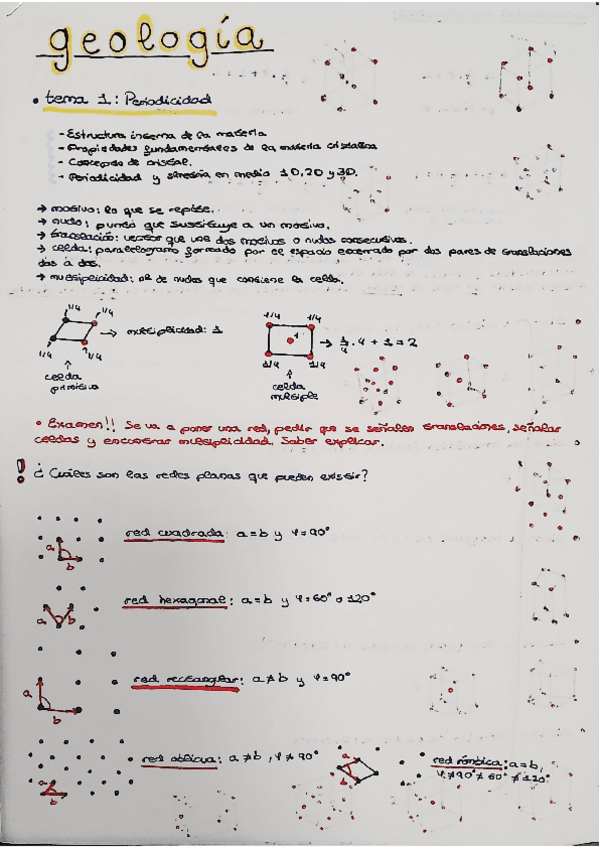 geología
• tema 1: Periodicidad
- Estructura interna de la materia
- Propiedades fundamentales de la materia cristalina
- Concepto de cristal.
- Periodicidad y simetría en medio 1D, 2D y 3D.
→ motivo: lo que se repite.
→ nudo: punto que sustituye a un motivo.
→ translación: vector que une dos motivos o nudos consecutivos.
→ celda: paralelogramo formado por el espacio encerrado por dos pares de translaciones
dos a dos.
→ multiplicidad: nº de nudos que contiene la celda.
1/4 1/4 1/4 1/4
→ multiplicidad: 1
1 → 1/4 · 4 + 1 = 2
1/4 1/4 1/4 1/4
celda primitiva
celda múltiple
• Examen!! Se va a poner una red, pedir que se señalen translaciones, señalar
celdas y encontrar multiplicidad. Saber explicar.
! ¿Cuáles son las redes planas que pueden existir?
a b red cuadrada: a = b y φ = 90°
a b red hexagonal: a = b y φ = 60° o 120°
a b red rectangular: a ≠ b y φ = 90°
a b red oblicua: a ≠ b, φ ≠ 90°
a b red rómbica: a = b,
φ ≠ 90° ≠ 60° ≠ 120°